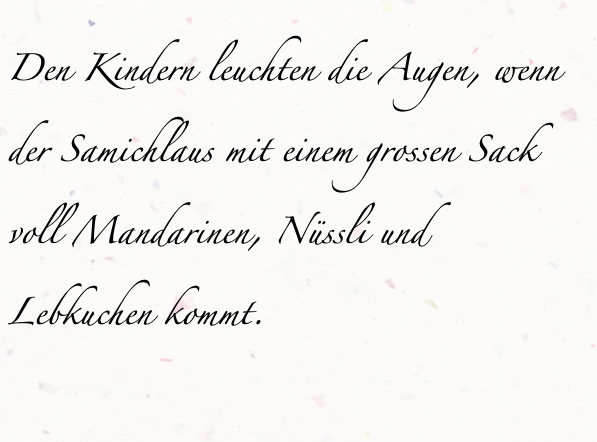 Den Kindern leuchten die Augen, wenn
der Samichlaus mit einem grossen Sack
voll Mandarinen, Nüssli und
Lebkuchen kommt.